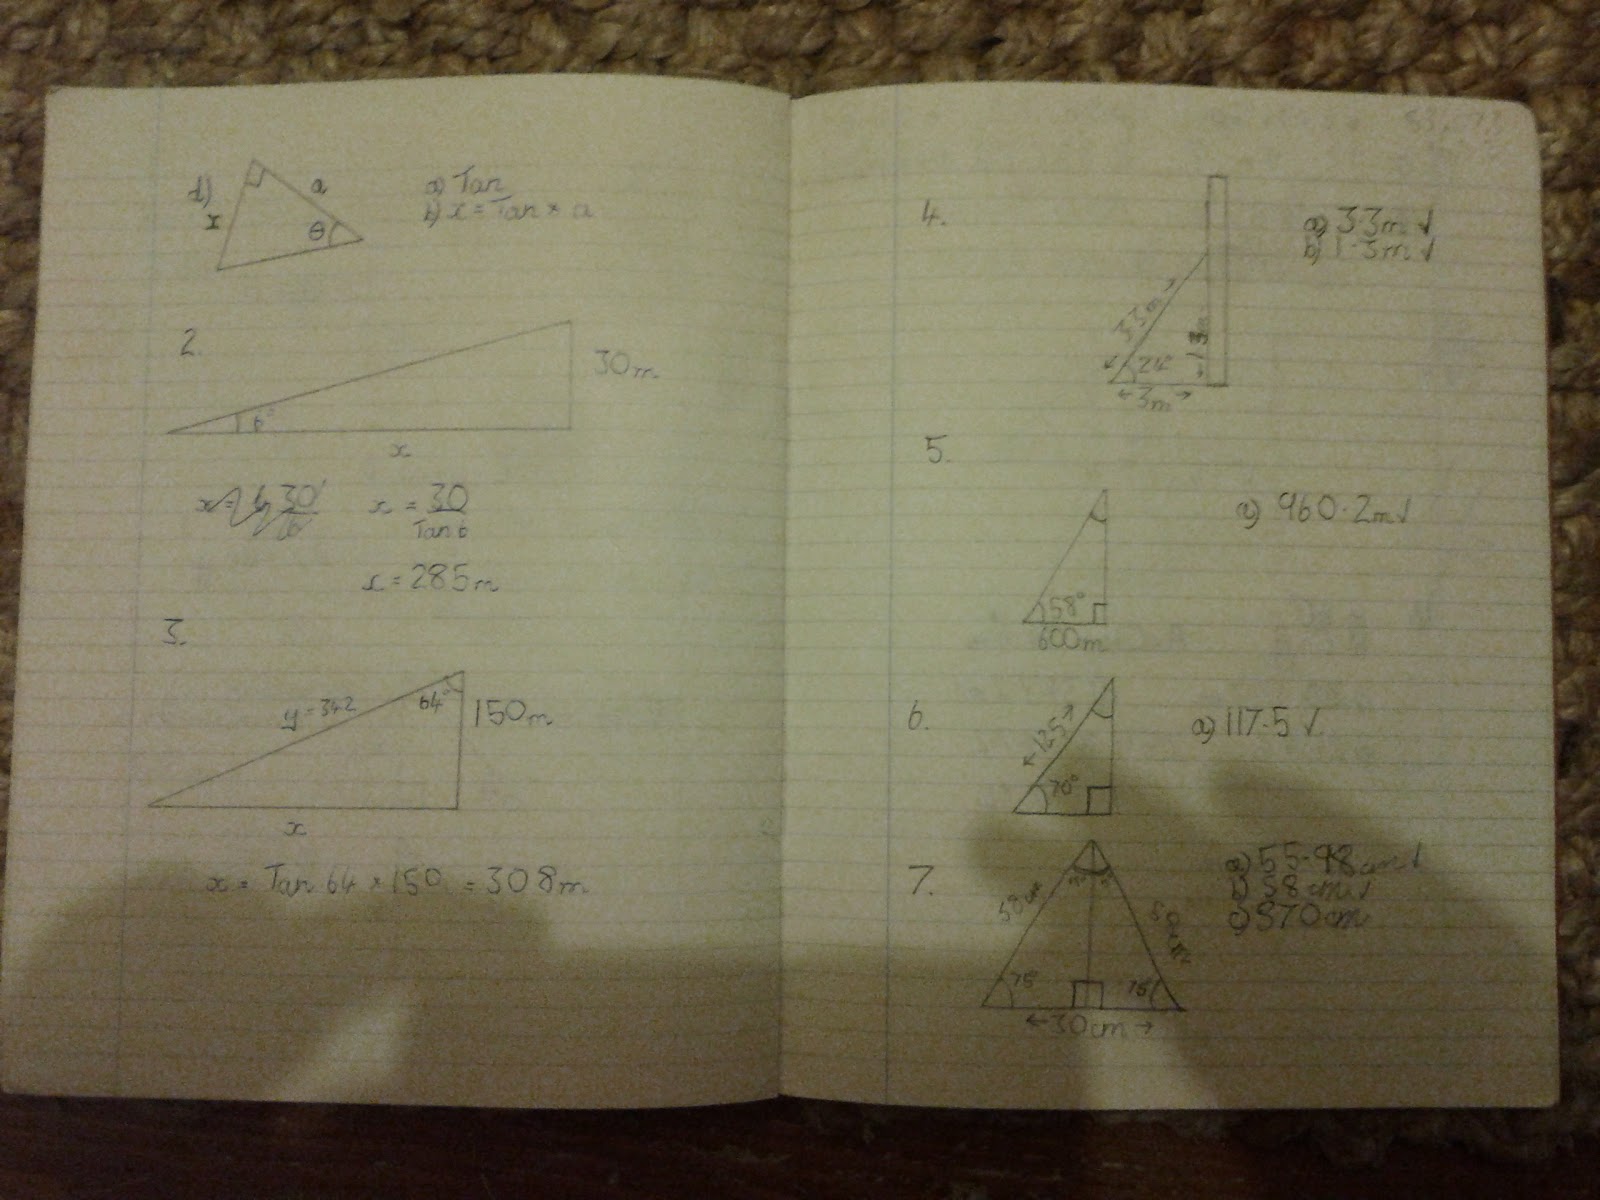 d)
a
x
θ
a) Tan
b) x = Tan × a
2.
30m
6°
x
x = 30
Tan 6
x = 285m
3.
y = 342
64°
150m
x
x = Tan 64 × 150 = 308m
4.
a) 3.3m ✓
b) 1.3m ✓
3.3m
24°
1.3m
3m
5.
a) 960.2m ✓
58°
600m
6.
a) 117.5 ✓
125
70°
7.
a) 55.98cm ✓
b) 58cm ✓
c) 870cm
58cm
75°
75°
30cm